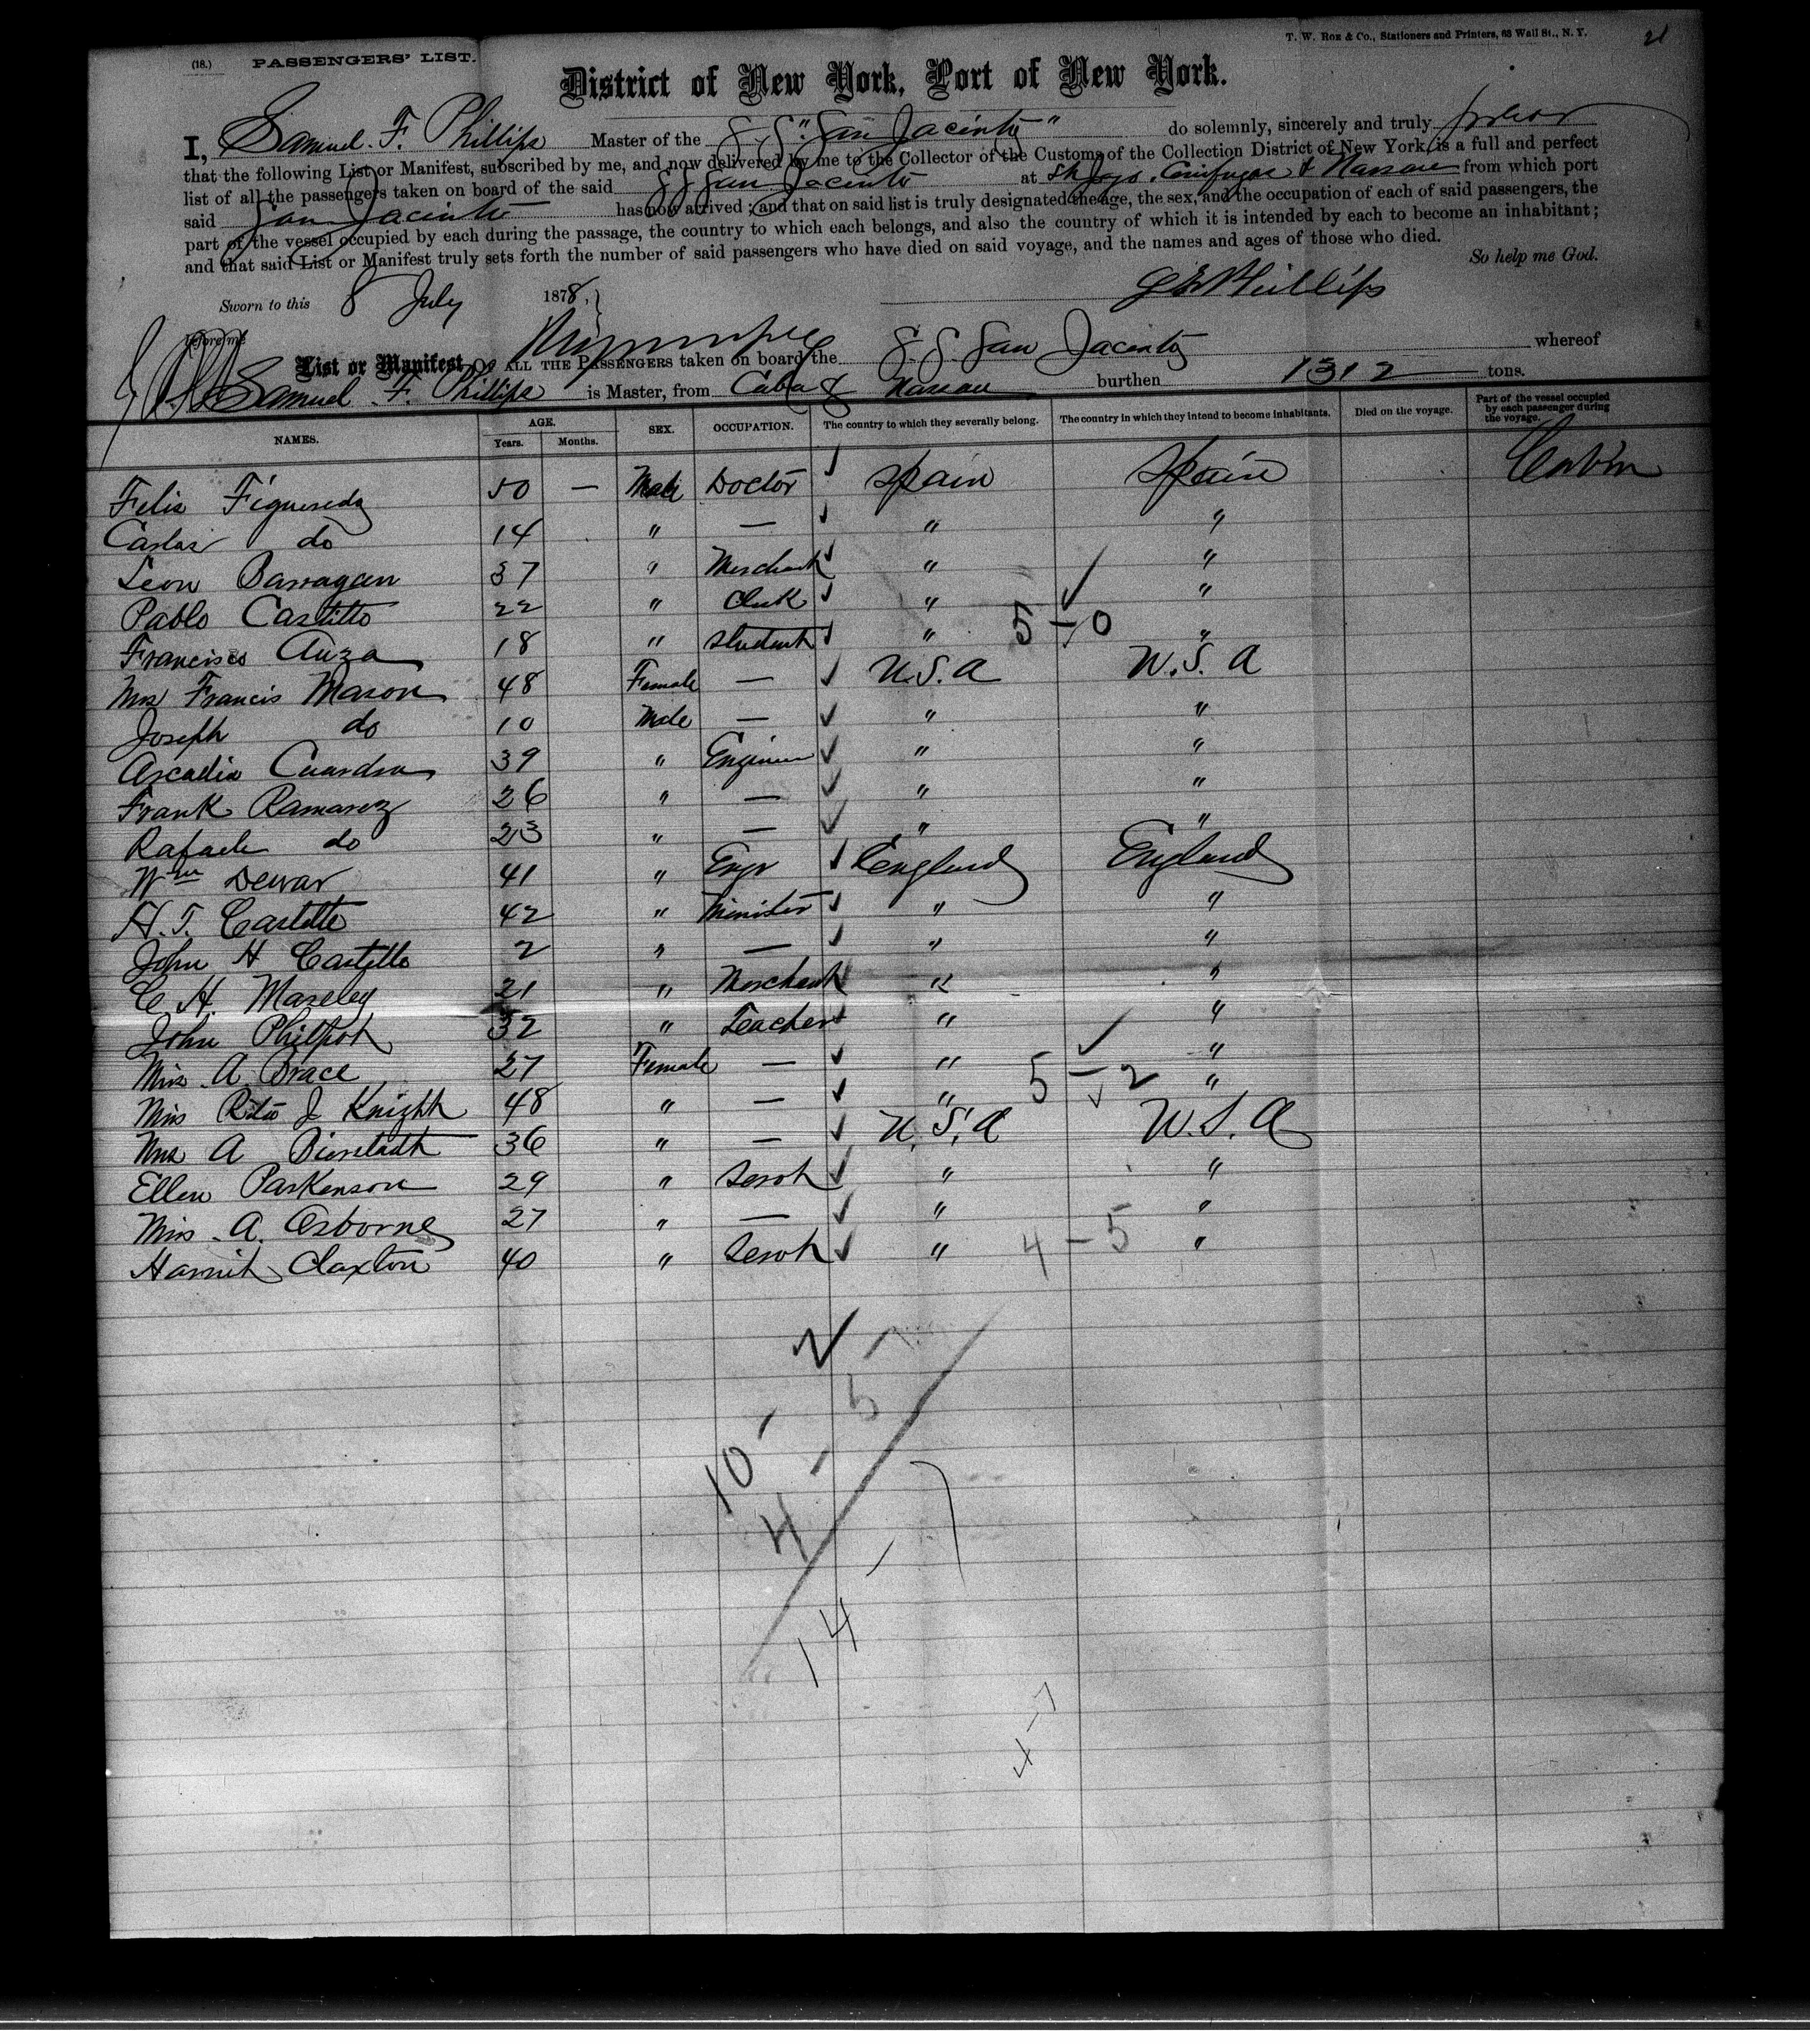 T. W. Roe & Co., Stationers and Printers, 63 Wall St., N. Y.
21
(18.) PASSENGERS' LIST.
District of New York, Port of New York.
I, Samuel. F. Phillips Master of the S. S. "San Jacinto" do solemnly, sincerely and truly swear
that the following List or Manifest, subscribed by me, and now delivered by me to the Collector of the Customs of the Collection District of New York, is a full and perfect
list of all the passengers taken on board of the said S S San Jacinto at St Jago. Cienfugos & Nassau from which port
said San Jacinto has now arrived; and that on said list is truly designated the age, the sex, and the occupation of each of said passengers, the
part of the vessel occupied by each during the passage, the country to which each belongs, and also the country of which it is intended by each to become an inhabitant;
and that said List or Manifest truly sets forth the number of said passengers who have died on said voyage, and the names and ages of those who died.
So help me God.
Sworn to this 8 July 1878, S F Phillips
before me
List or Manifest OF ALL THE PASSENGERS taken on board the S. S. San Jacinto whereof
Samuel. F. Phillips is Master, from Cuba & Nassau burthen 1312 tons.
NAMES. AGE. Years. Months. SEX. OCCUPATION. The country to which they severally belong. The country in which they intend to become inhabitants. Died on the voyage. Part of the vessel occupied by each passenger during the voyage.
Felix Figueredo 50 — Male Doctor ✓ Spain Spain Cabin
Carlos do 14 " — ✓ " "
Leon Barragan 37 " Merchant ✓ " "
Pablo Castillo 22 " Clerk ✓ " "
5 – 0 ✓
Francisco Auza 18 " Student ✓ " "
Mrs Francis Mason 48 Female — ✓ U.S.A U.S.A
Joseph do 10 Male — ✓ " "
Arcadio Cuardra 39 " Engineer ✓ " "
Frank Ramarez 26 " — ✓ " "
Rafaele do 23 " — ✓ " "
Wm Dewar 41 " Engr ✓ England England
H. T. Castitte 42 " Minister ✓ " "
John H Castillo 2 " — ✓ " "
C H. Maseley 21 " Merchant ✓ " "
John Philpot 32 " Teacher ✓ " "
Miss A. Brace 27 Female — ✓ " "
5 – 2 ✓
Miss Rita J Knight 48 " — ✓ " "
Mrs A Bierstadt 36 " — ✓ U.S.A U.S.A
Ellen Parkenson 29 " Servt ✓ " "
Miss. A. Osborne 27 " — ✓ " "
4 – 5
Harriet Claxton 40 " Servt ✓ " "
10 –
4 – 5
14 – 7